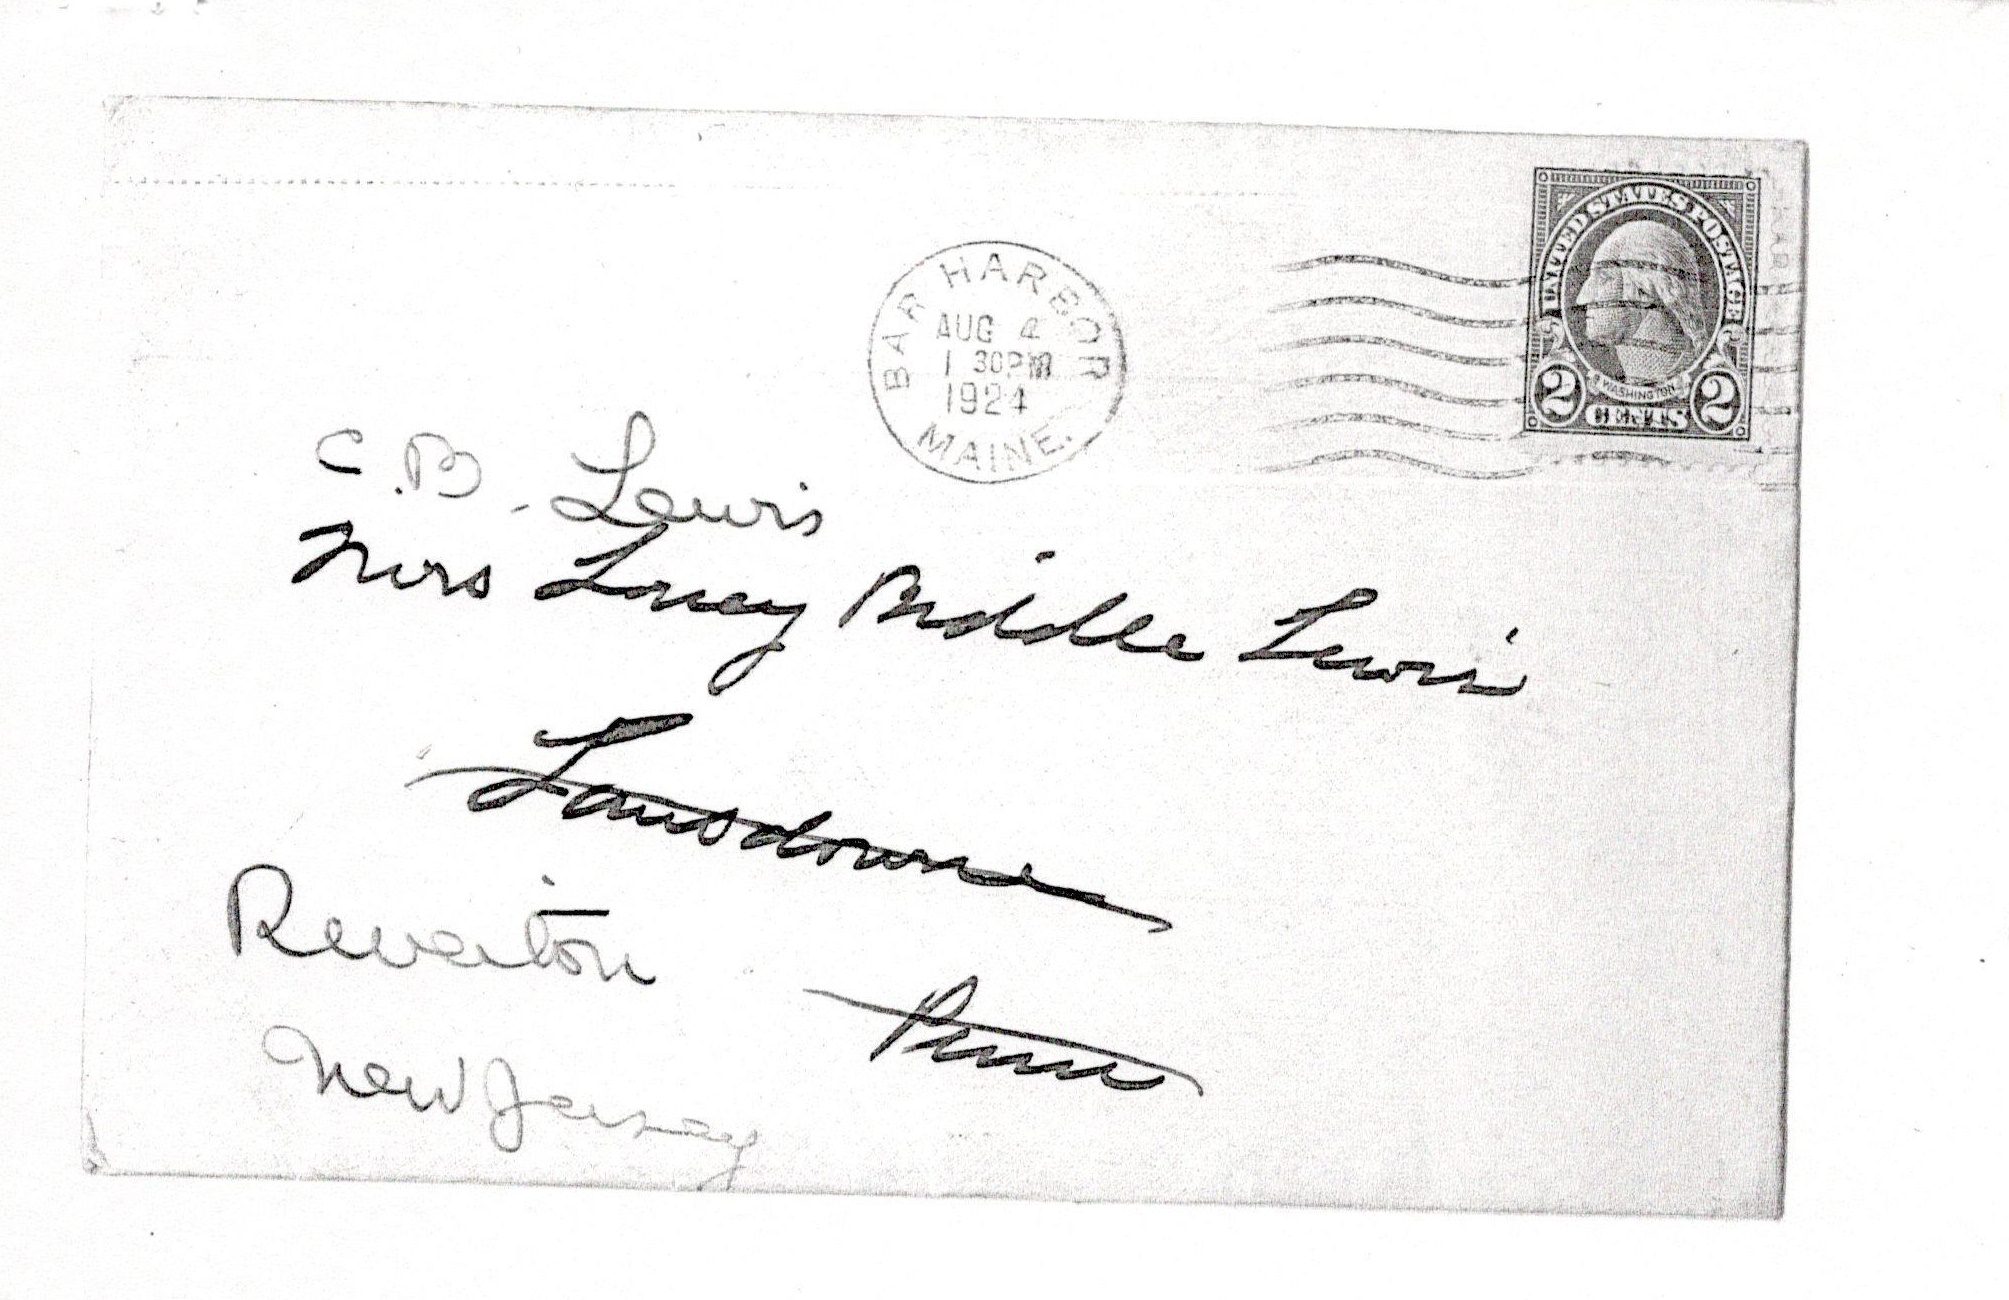 UNITED STATES POSTAGE
WASHINGTON
2 CENTS 2
BAR HARBOR
AUG 4
1 30PM
1924
MAINE.
C.B. Lewis
Mrs Lucy Biddle Lewis
Lansdowne
Riverton
Penn
New Jersey